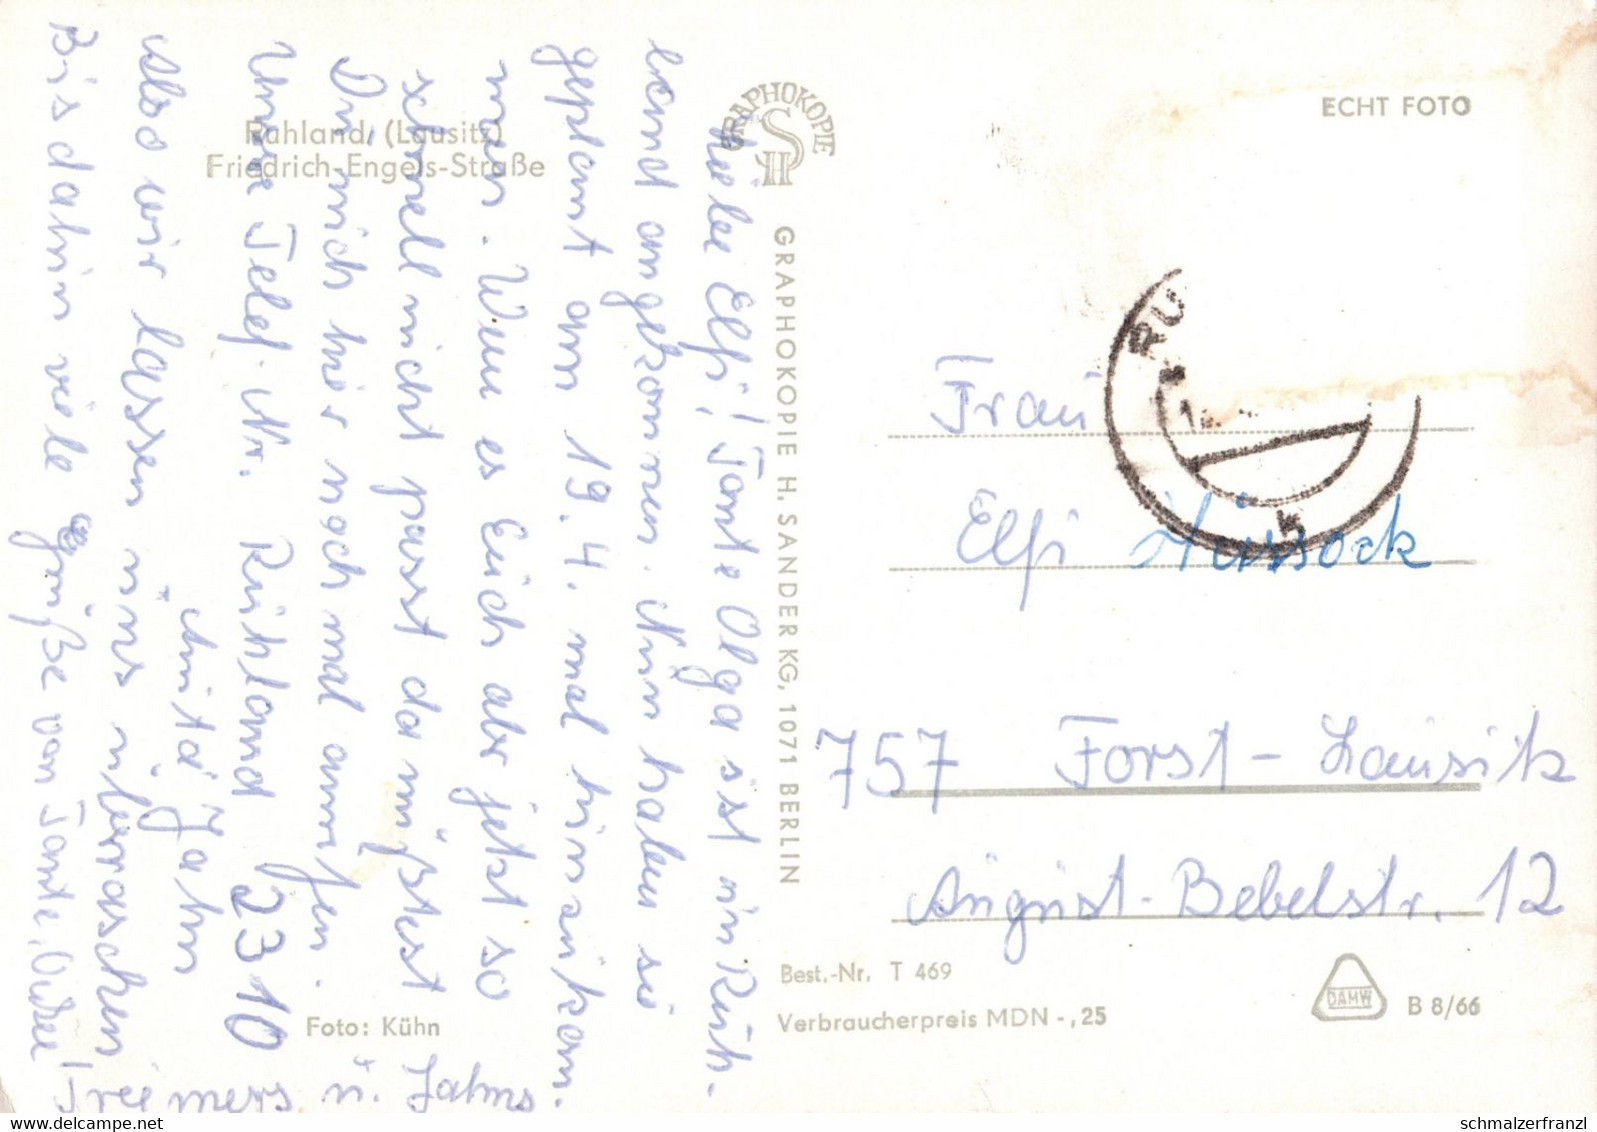 Ruhland, (Lausitz)
Friedrich-Engels-Straße
GRAPHOKOPIE
SH
GRAPHOKOPIE H. SANDER KG, 1071 BERLIN
ECHT FOTO
Liebe Elfi! Tante Olga ist in Ruh-
land angekommen. Nun haben sie
geplant am 19.4. mal hinzukom-
men. Wenn es Euch aber jetzt so
schnell nicht passt da müßtest
Du mich hier noch mal anrufen.
Unsre Telef. Nr. Ruhland 2310
Anita Jahn
Also wir lassen uns überraschen
Bis dahin viele Grüße von Tante,
u. Jahns
RU
Frau
Elfi
757 Forst-Lausitz
August-Bebelstr. 12
Best.-Nr. T 469
Verbraucherpreis MDN -,25
DAMW
B 8/66
Foto: Kühn
www.schmalzerfranzl.com
schmalzerfranzl